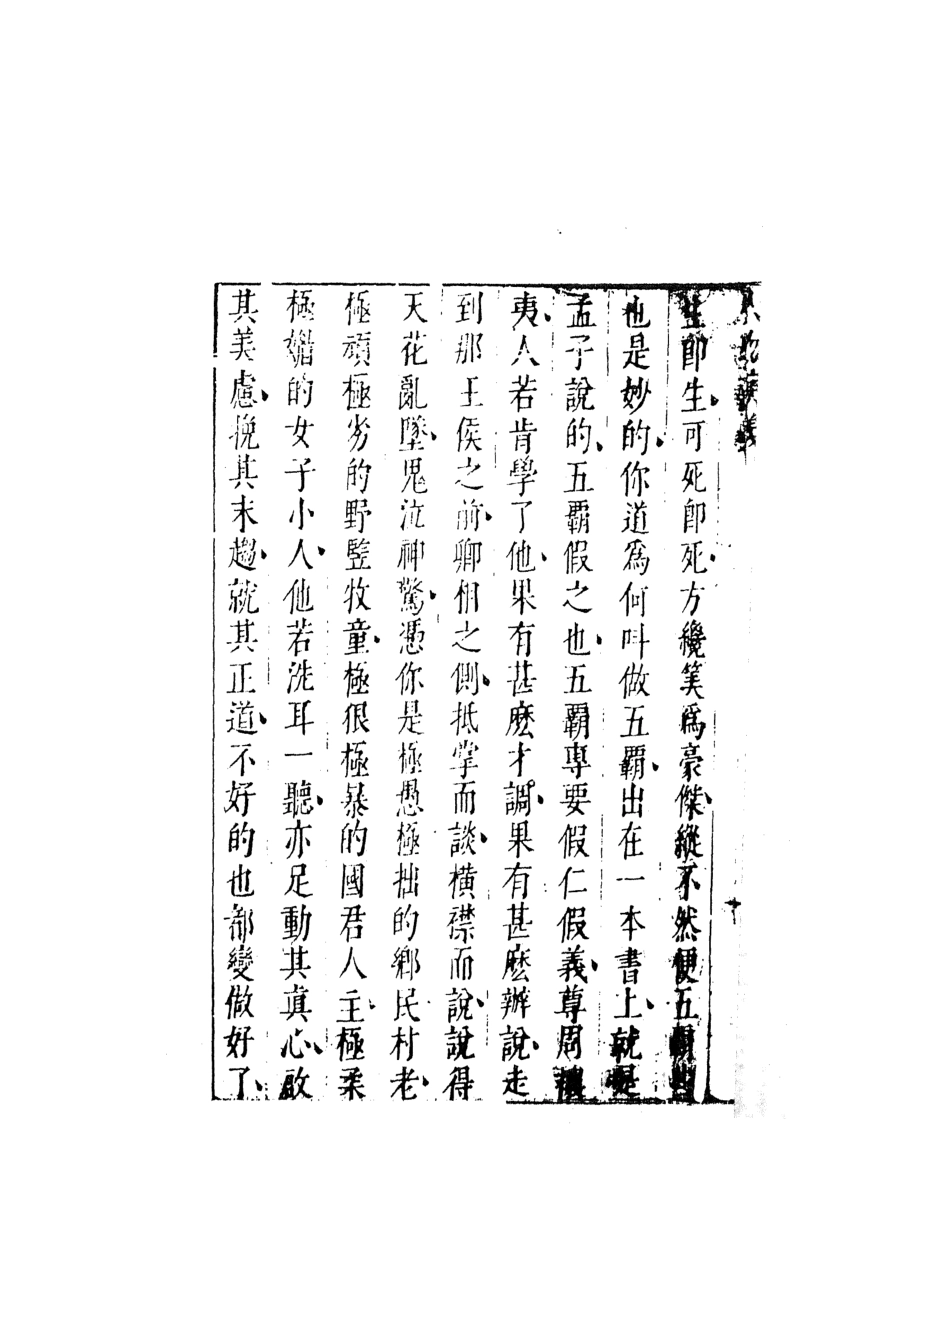 生卽生可死卽死方纔筭爲豪傑縱不然便五霸
也是妙的你道爲何叫做五霸出在一本書上就是
孟子說的五霸假之也五霸專要假仁假義尊周攘
夷人若肯學了他果有甚麽才調果有甚麽辦說走
到那王侯之前卿相之側抵掌而談横襟而說說得
天花亂墜鬼泣神驚憑你是極愚極拙的鄉民村老
極頑極劣的野竪牧童極很極暴的國君人主極柔
極媚的女子小人他若洗耳一聽亦足動其眞心啟
其美慮挽其末趨就其正道不好的也都變做好了